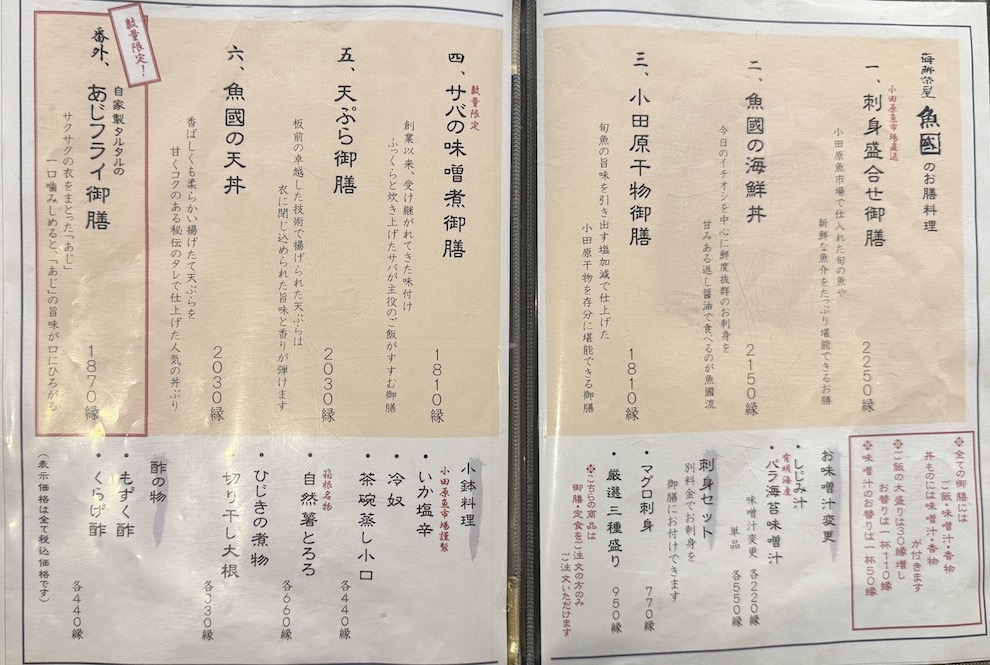 海鮮茶屋 魚國 のお膳料理
一、刺身盛合せ御膳
小田原魚市場直送
小田原魚市場で仕入れた旬の魚や
新鮮な魚介をたっぷり堪能できるお膳
2250縁
二、魚國の海鮮丼
今日のイチオシを中心に鮮度抜群のお刺身を
甘みある返し醤油で食べるのが魚國流
2150縁
三、小田原干物御膳
旬魚の旨味を引き出す塩加減で仕上げた
小田原干物を存分に堪能できる御膳
1810縁
※全ての御膳には
ご飯・味噌汁・香物
丼ものには味噌汁・香物
が付きます
※ご飯の大盛りは30縁増し
お替りは一杯110縁
※味噌汁のお替りは一杯50縁
お味噌汁変更
・しじみ汁
有明海産
・バラ海苔味噌汁
味噌汁変更 各220縁
単品 各550縁
刺身セット
別料金でお刺身を
御膳にお付けできます
・マグロ刺身 770縁
・厳選三種盛り 950縁
※こちらの商品は
御膳・定食をご注文の方のみ
ご注文いただけます
四、サバの味噌煮御膳
数量限定
創業以来、受け継がれてきた味付け
ふっくらと炊き上げたサバが主役のご飯がすすむ御膳
1810縁
五、天ぷら御膳
板前の卓越した技術で揚げられた天ぷらは
衣に閉じ込められた旨味と香りが弾けます
2030縁
六、魚國の天丼
香ばしくも柔らかい揚げたて天ぷらを
甘くコクのある秘伝のタレで仕上げた人気の丼ぶり
2030縁
数量限定！
番外、自家製タルタルの
あじフライ御膳
サクサクの衣をまとった「あじ」
一口噛みしめると、「あじ」の旨味が口にひろがる
1870縁
小鉢料理
小田原魚市場謹製
・いか塩辛
・冷奴
・茶碗蒸し小口
各440縁
箱根名物
・自然薯とろろ
各660縁
・ひじきの煮物
・切り干し大根
各330縁
酢の物
・もずく酢
・くらげ酢
各440縁
（表示価格は全て税込価格です）